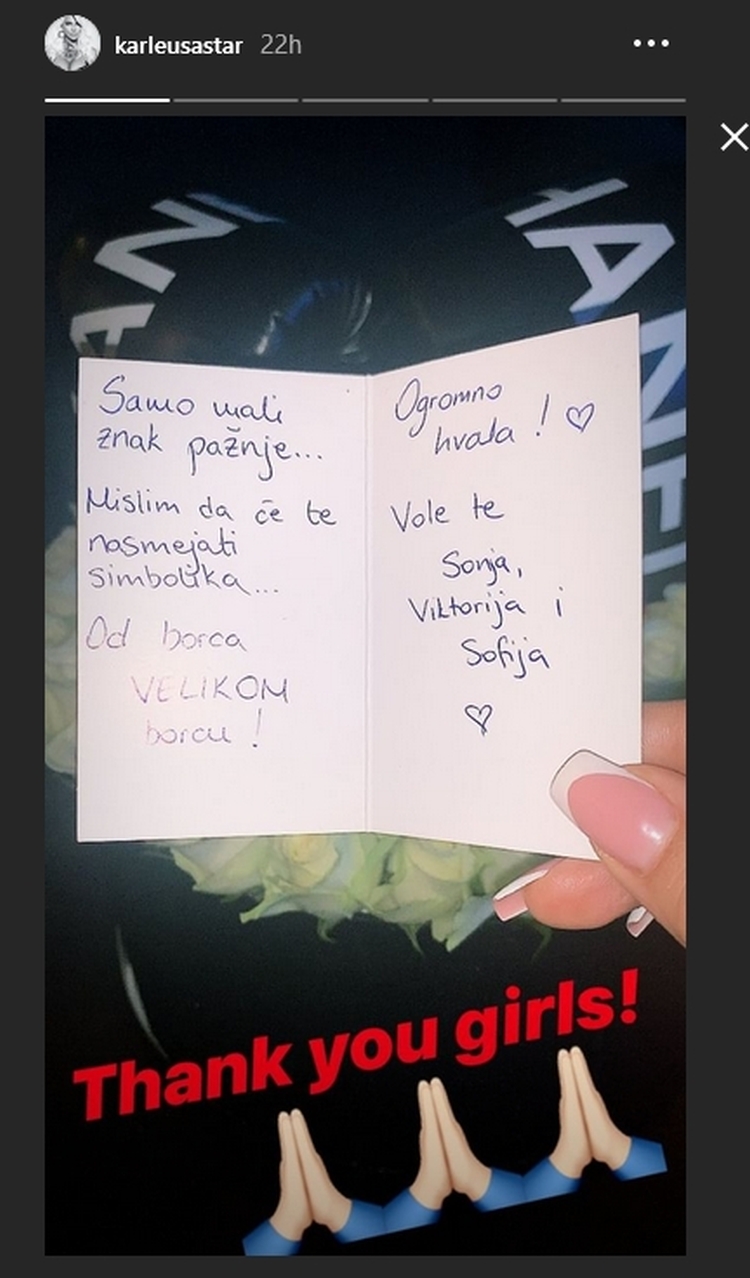 karleusastar 22h
Samo mali
znak pažnje...
Mislim da će te
nasmejati
simbolika...
Od borca
VELIKOM
borcu!
Ogromno
hvala! ♡
Vole te
Sonja,
Viktorija i
Sofija
♡
Thank you girls!
🙏🏻🙏🏻🙏🏻